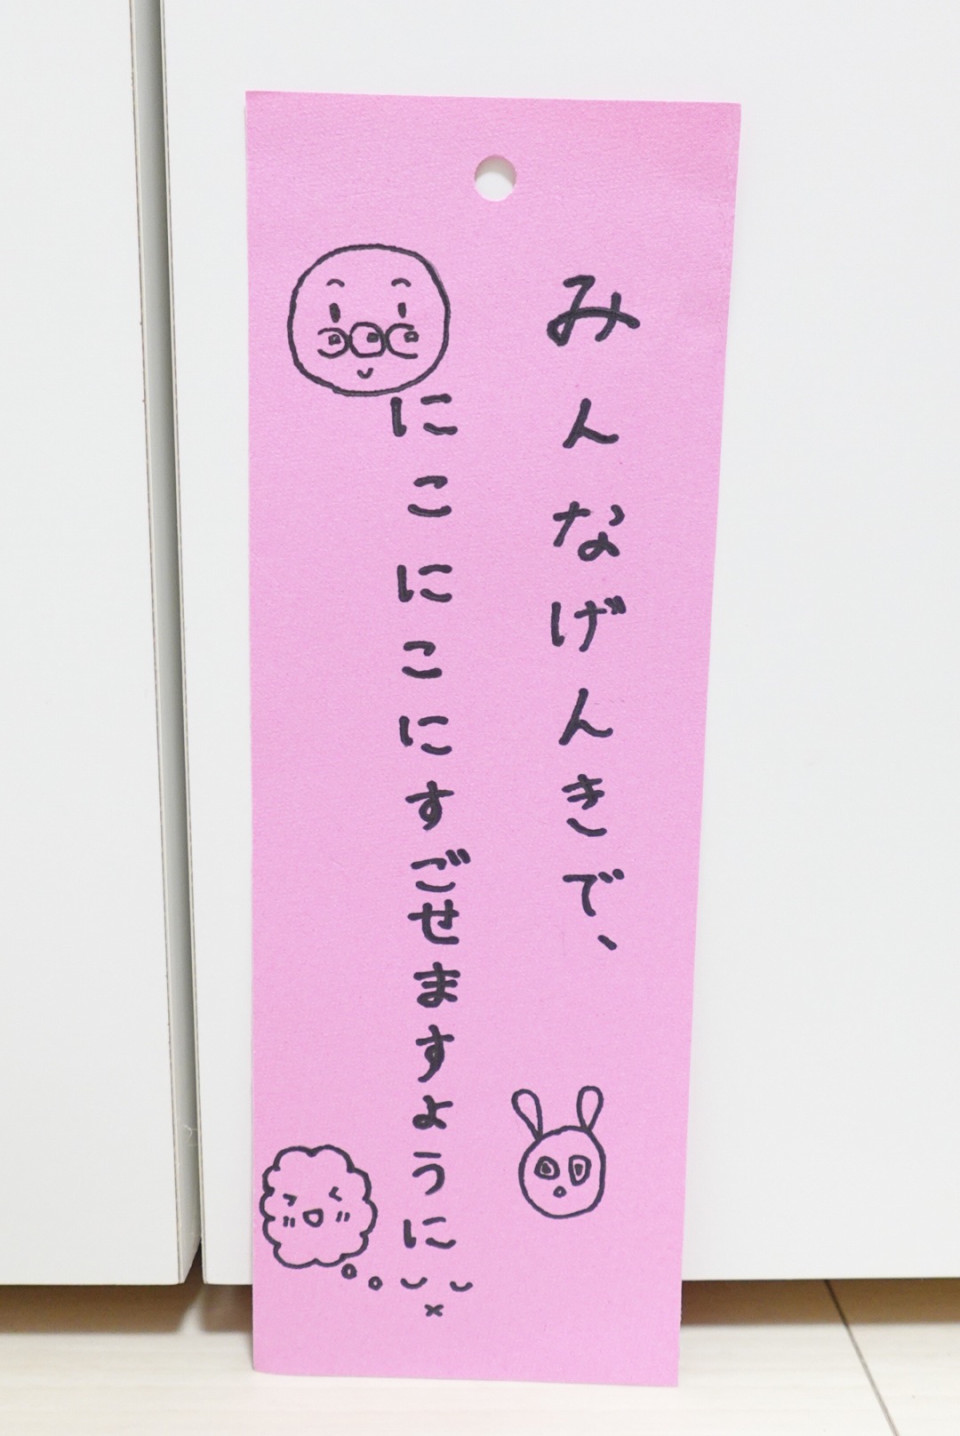 みんなげんきで、
にこにこにすごせますように